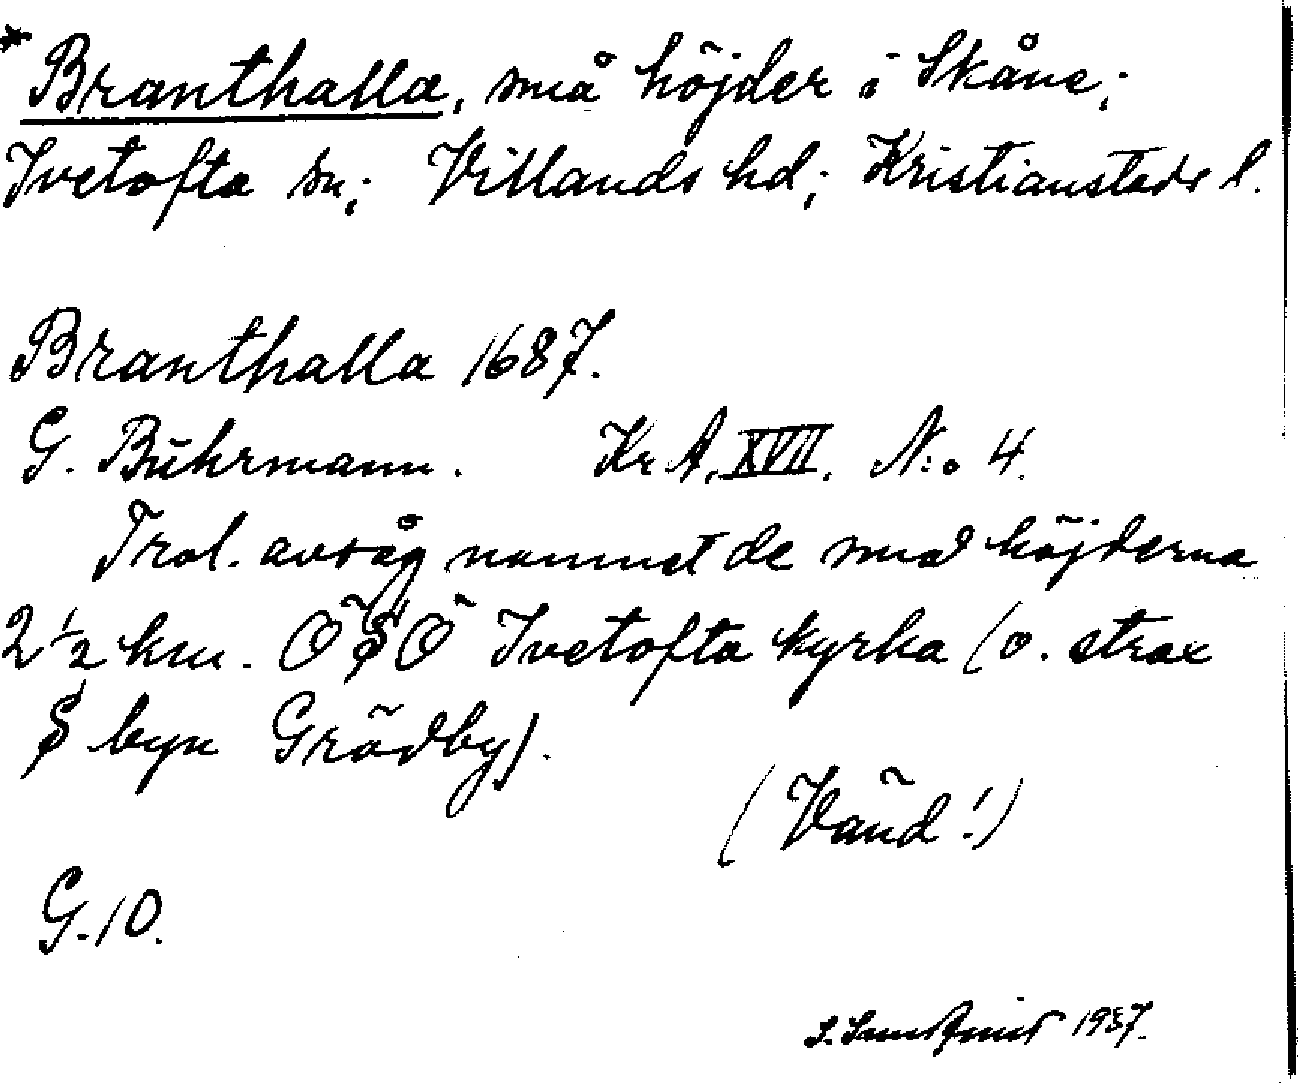 * Branthalla, små höjder i Skåne;
Ivetofta sn; Villands hd; Kristianstads l.
Branthalla 1687.
G. Buhrmann. Kr A. XVII. N:o 4.
Trol. avsåg namnet de små höjderna
2 1/2 km. ÖSÖ Ivetofta kyrka (o. strax
S byn Grödby).
(Vänd!)
G.10.
1937.